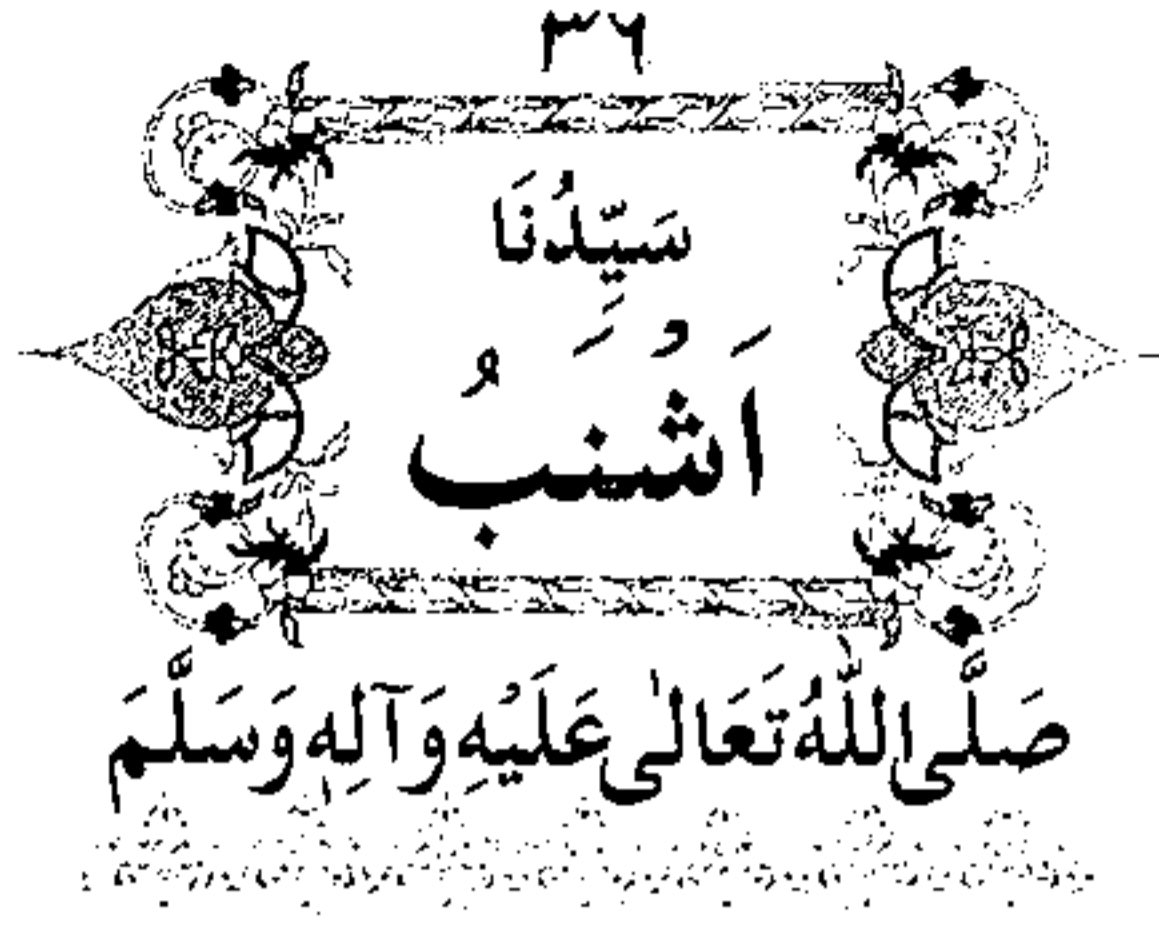 ۳۶
سَيِّدُنَا
اَشْنَبُ
صَلَّى اللّٰهُ تَعَالٰى عَلَيْهِ وَآلِهٖ وَسَلَّمَ